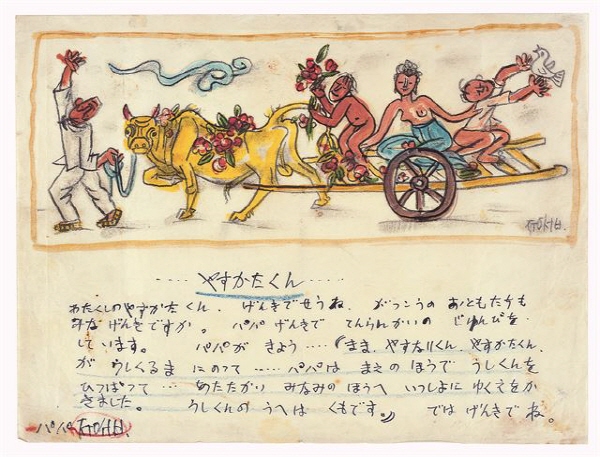 ‥‥‥やすかたくん‥‥‥
わたくしのやすかたくん、げんきでせうね、がつこうの おともたちも
みな げんきですか。パパ げんきで てんらんかいの じゆんびを
しています。 パパが きよう‥‥「まま、やすなりくん、やすかたくん、
が うしくるま に のつて ‥‥パパは まえの ほうで うしくんを
ひつぱつて ‥‥ あたたかい みなみの ほうへ いつしよに ゆくえをか
きました。 うしくんの うへは くもです。」 では げんきで ね。
パパ